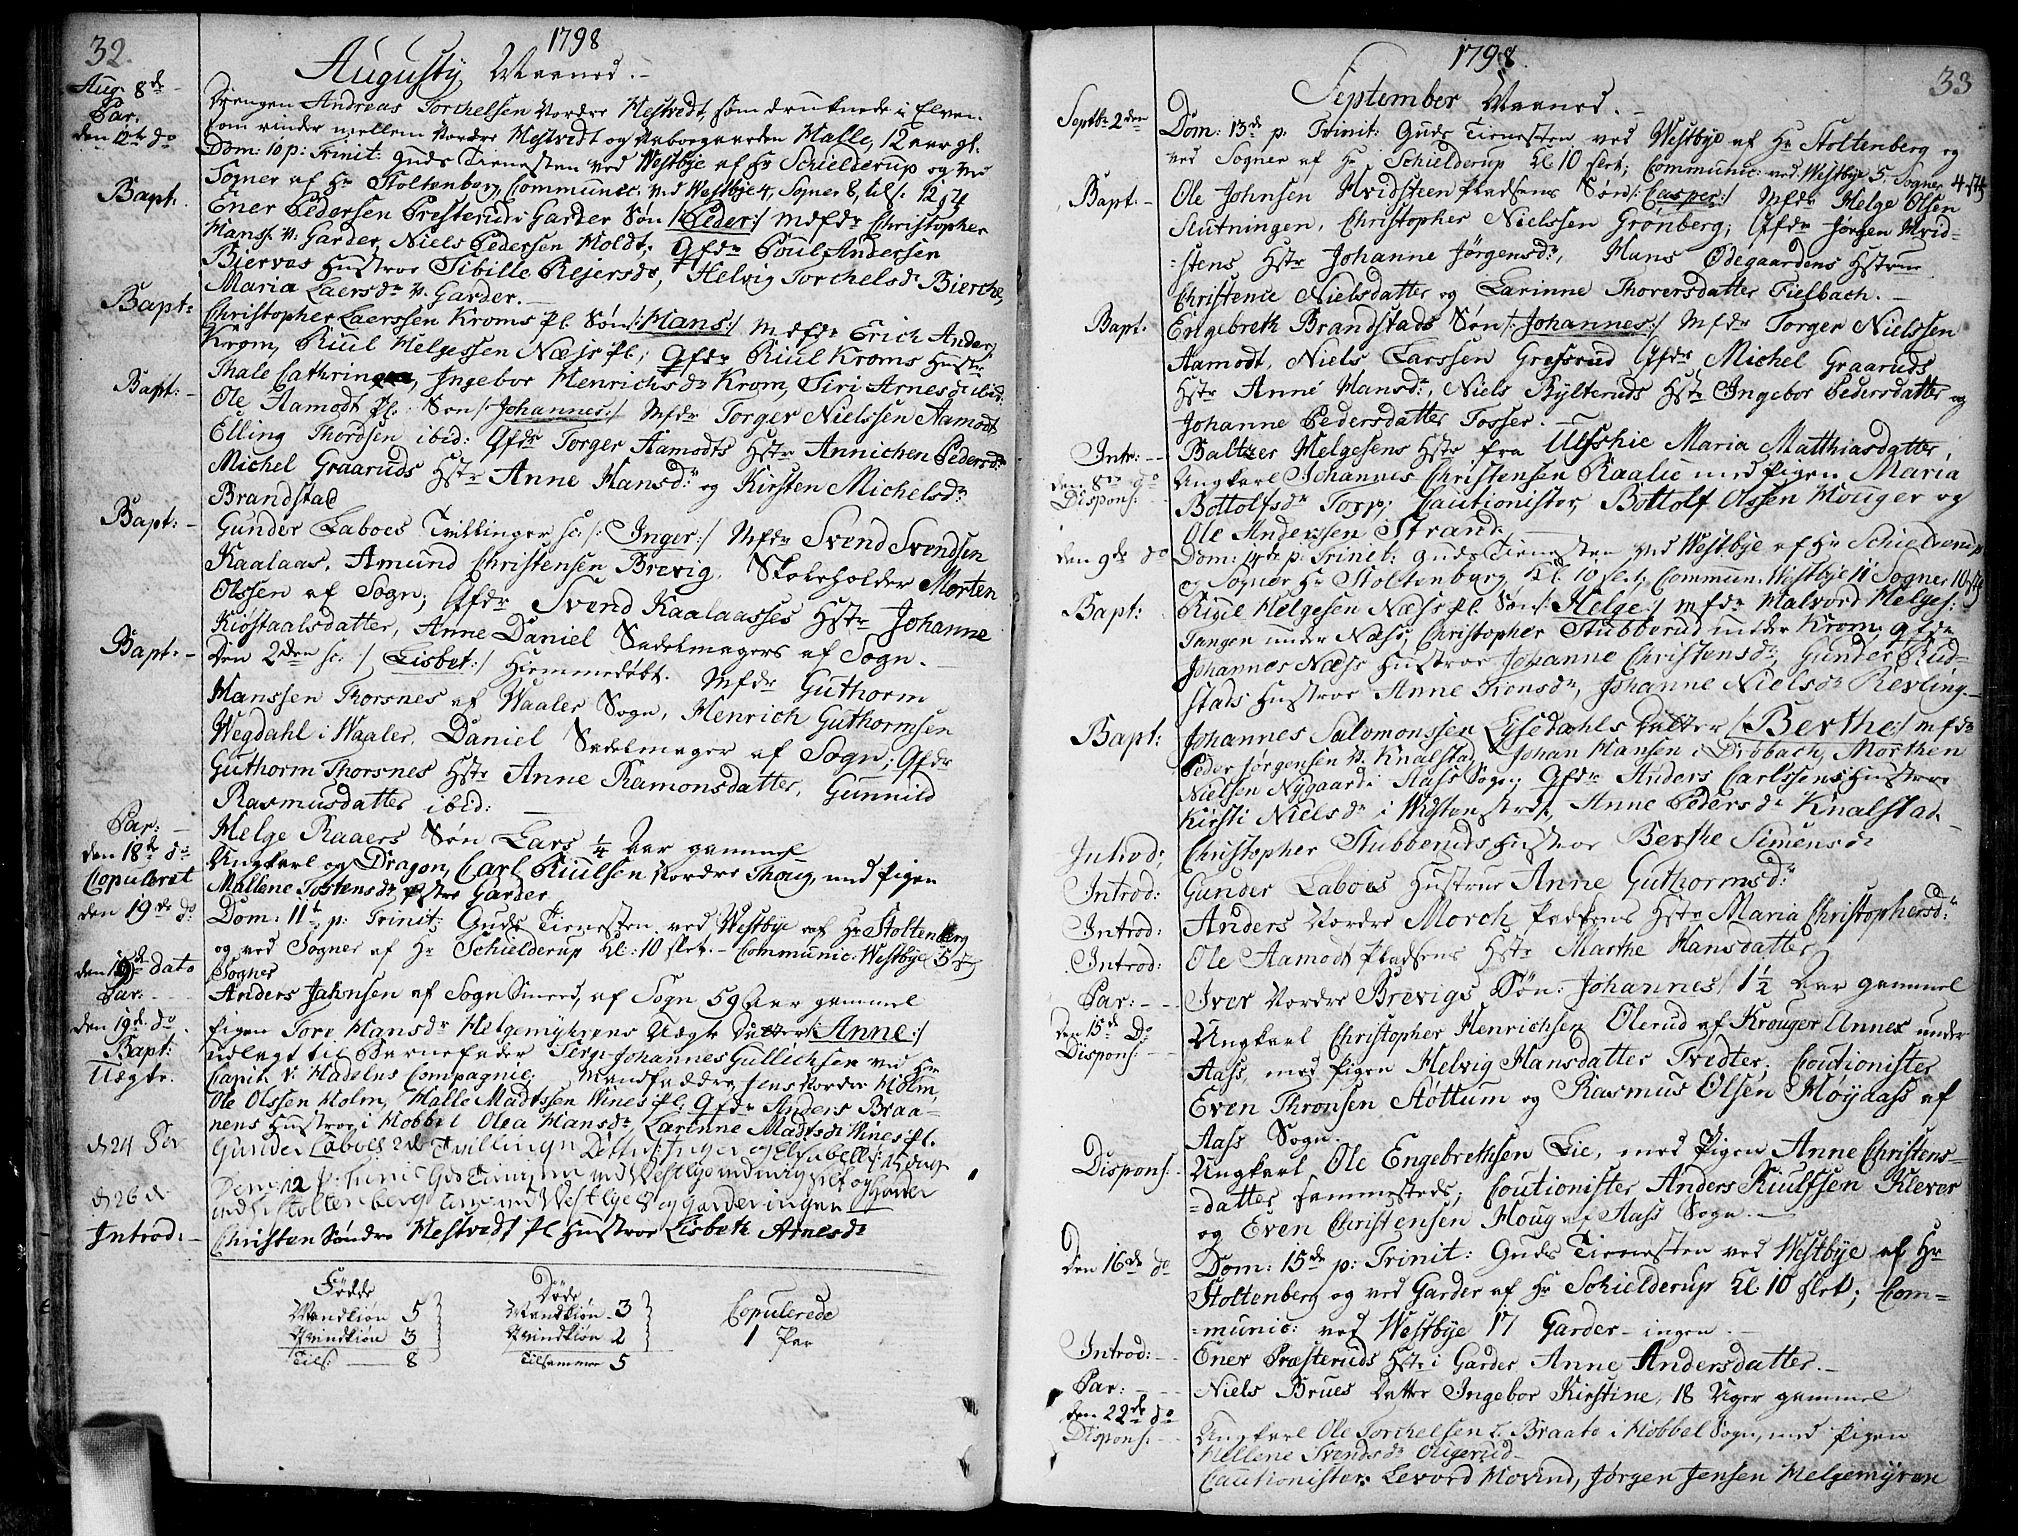 32.
1798
Augustÿ Maaned. -
Aug. 8de
Par.
Drengen Andreas Torchelsen Nordre Hestvedt, som druknede i Elven
som rinder mellem Nordre Hestvedt og Naboegaarden Halle, 12 aar gl.
den 12te do
Dom: 10 p: Trinit: Guds Tienesten ved Westbÿe af Hr Schielderup og ved
Sogner af Hr Stoltenberg, Communic: ved Westbÿe 4, Sogner 8, tils: 12
Bapt.
Ener Pedersen Presteruds Garder Søn /: Peder :/ Mdfdr Christopher
Hans: v. Garder, Niels Pedersen Holdt; Qfdr Poul Andersen
Biervas Hustroe Sibille Rejersdr, Helvig Torchelsdr Bierche,
Maria Laersdr v. Garder. -
Bapt:
Christopher Laerssen Kroms Pl. Søn /: Hans :/ Mdfdr Erich Anders:
Krom, Riul Helgessen Næss Pl; Qfdr Riul Kroms Hustr
Thale Cathrin, Ingebor Henrichsdr Krom, Siri Arnesdr ibid:
Bapt: -
Ole Aamodt Pl: Søn /: Johannes :/ Mfdr Torger Nielssen Aamodt
Elling Thordsen ibid: Qfdr Torger Aamodts Hstr Annichen Pedersdr
Michel Graaruds Hstr Anne Hansdr og Kirsten Michelsdr
Brandstad
Bapt: -
Gunder Laboes Tvillinger sc: /: Inger :/ Mfdr Svend Svendsen
Kaalaas, Amund Christensen Brevig, Skoleholder Morten
Olssen af Sogn; Qfdr Svend Kaalaasses Hstr Johanne
Kiøstaalsdatter, Anne Daniel Sadelmagers af Sogn. -
Bapt: -
Den 2den sc: /: Lisbet :/ Hiemmedøbt. Mfdr Guthorm
Hanssen Thorsnes af Waaler Sogn, Henrich Guthormsen
Wegdahl i Waaler, Daniel Sadelmager af Sogn; Qfdr
Guthorm Thorsnes Hstr Anne Ramonsdatter, Gunnild
Rasmusdatter ibid: -
Par: -
Helge Raaers Søn Lars 1/4 Aar gammel
den 18de do
Copuleret
Ungkarl og Dragon Carl Riulsen Nordre Thoug, med Pigen
Mallene Tostensdr Østre Garder
den 19de do:
Dom: 11te p: Trinit: Guds Tienesten ved Westbÿe af Hr Stoltenberg
og ved Sogner af Hr Schielderup Kl: 10 slet. - Communic: Westbÿe 5
den 19de dato
Sogner
Par: -
Anders Jahnsen af Sogn Smed, af Sogn 59 Aar gammel
den 19de do
Pigen Tore Hansdr Helgemÿhrens Uægte Datter /: Anne :/
Bapt:
Uægte.
udlagt til Barnefader Serg: Johannes Gullichsen ved Hr
Capit: v: Hadelns Compagnie; Mandfaddre Jens Nordre Holm,
Ole Olssen Holm, Halle Madtssen Vines Pl: Qfdr Anders Braa-
nens Hustroe i Hobbel Olea Hansdr, Larinne Madtsdr Vines Pl.
d 24 Par
Gunder Laboes 2de Tvillinge Døttre /: Inger og Elisabeth :/
d 26 d
Dom: 12 p: Trinit:
Stoltenberg Westbÿe og Garder ingen
Introd: -
Christen Søndre Hestvedt Pl Hustroe Lisbeth Arnesdr
Fødde
Mandkiøn 5
Qvindkiøn 3
Tils: 8
Døde
Mandkiøn 3
Qvindkiøn 2
Tilsammen 5
Copulerede
1 Par
33
1798.
September Maaned. -
Septbr 2den
Dom: 13de p: Trinit: Guds Tienesten ved Westbÿe af Hr Stoltenberg og
ved Sogner af Hr Schielderup Kl 10 slet; Communic: ved Westbÿe 5 Sogner 4
Bapt: -
Ole Johnsen Hvidsteen Pladsens Søn /: Casper :/ Mfdr Helge Olsen
Slutningen, Christopher Nielssen Grønberg; Qfdr Jørgen Hvid-
=stens Hstr Johanne Jørgensdr, Hans Ødegaardens Hstrue
Christence Nielsdatter og Larinne Thorersdatter Fielbach. -
Bapt.
Engebreth Brandstads Søn /: Johannes :/ Mfdr Torger Nielssen
Aamodt, Niels Larssen Gresrud Qfdr Michel Graaruds
Hstr Anne Hansdr, Niels Bÿlteruds Hstr Ingebor Pedersdatter og
Johanne Pedersdatter Tosser. -
Intr: -
Baltzer Helgesens Hstr fra Ulfshie Maria Matthiasdatter,
den 8de do
Dispons:
Ungkarl Johannes Christensen Raalie med Pigen Maria
Bottolfsdr Torp; Cautionister, Bottolf Olssen Houger og
Ole Anderssen Strand. -
den 9de do
Dom: 14de p: Trinit: Guds Tienesten ved Westbÿe af Hr Schielderup
og Sogner Hr Stoltenberg, Kl. 10 slet; Commun: Westbÿe 11 Sogner 10
Bapt:
Riul Helgesen Næss Pl. Søn /: Helge :/ Mfdr Halvord Helges:
Tangen under Næss, Christopher Stubberud under Krom, Qfdr
Johannes Næss Hustroe Johanne Christensdr, Gunder Rud-
stads Hustroe Anne Sionsdr, Johanne Nielsdr Revling. -
Bapt:
Johannes Salomonssen Lysedahls Datter /: Berthe :/ Mfdr
Peder Jørgensen v. Knalstad, Johan Hansen i Drøbach, Morthen
Nielsen Nÿgaard i Aass Sogn; Qfdr Anders Carlssens Hustroe
Kirsti Nielsdr i Widsten Strd, Anne Pedersdr Knalstad. -
Introd:
Christopher Stubberuds Hustroe Berthe Simensdr
Introd:
Gunder Laboes Hustrue Anne Guthormsdr
Introd:
Anders Nordre Morch Pladsens Hstr Maria Christophersdr
Introd:
Ole Aamodt Pladsens Hstr Marthe Hansdatter
Par: -
Iver Nordre Brevigs Søn: Johannes / 1 1/2 Aar gammel
den 15de Do
Dispons: -
Ungkarl Christopher Henrichsen Olerud af Krouger Annex under
Aass, med Pigen Helvig Hansdatter Tvedter; Coutionister
Even Thronsen Støttum og Rasmus Olsen Høÿdass af
Aass Sogn.
Dispons: -
Ungkarl Ole Engebrethsen Lie, med Pigen Anne Christens-
=datter sammesteds; Coutionister Anders Riulssen Klever
og Even Christensen Houg af Aass Sogn. -
Den 16de do
Dom: 15de p: Trinit: Guds Tienesten ved Westbÿe af Hr
Stoltenberg og ved Garder af Hr Schielderup Kl: 10 slet; Com-
=munic: ved Westbÿe 17 Garder - ingen -
Introd: -
Ener Præsteruds Hstr i Garder Anne Andersdatter. -
Par: -
Niels Brues Datter Ingebor Kirstine, 18 Uger gammel
den 22de do
Dispons: -
Ungkarl Ole Torchelsen L. Braate i Hobbel Sogn, med Pigen
Hellene Svendsdr Ougerud
Cautionister: Levord Hovind, Jørgen Jensen Helgemÿren